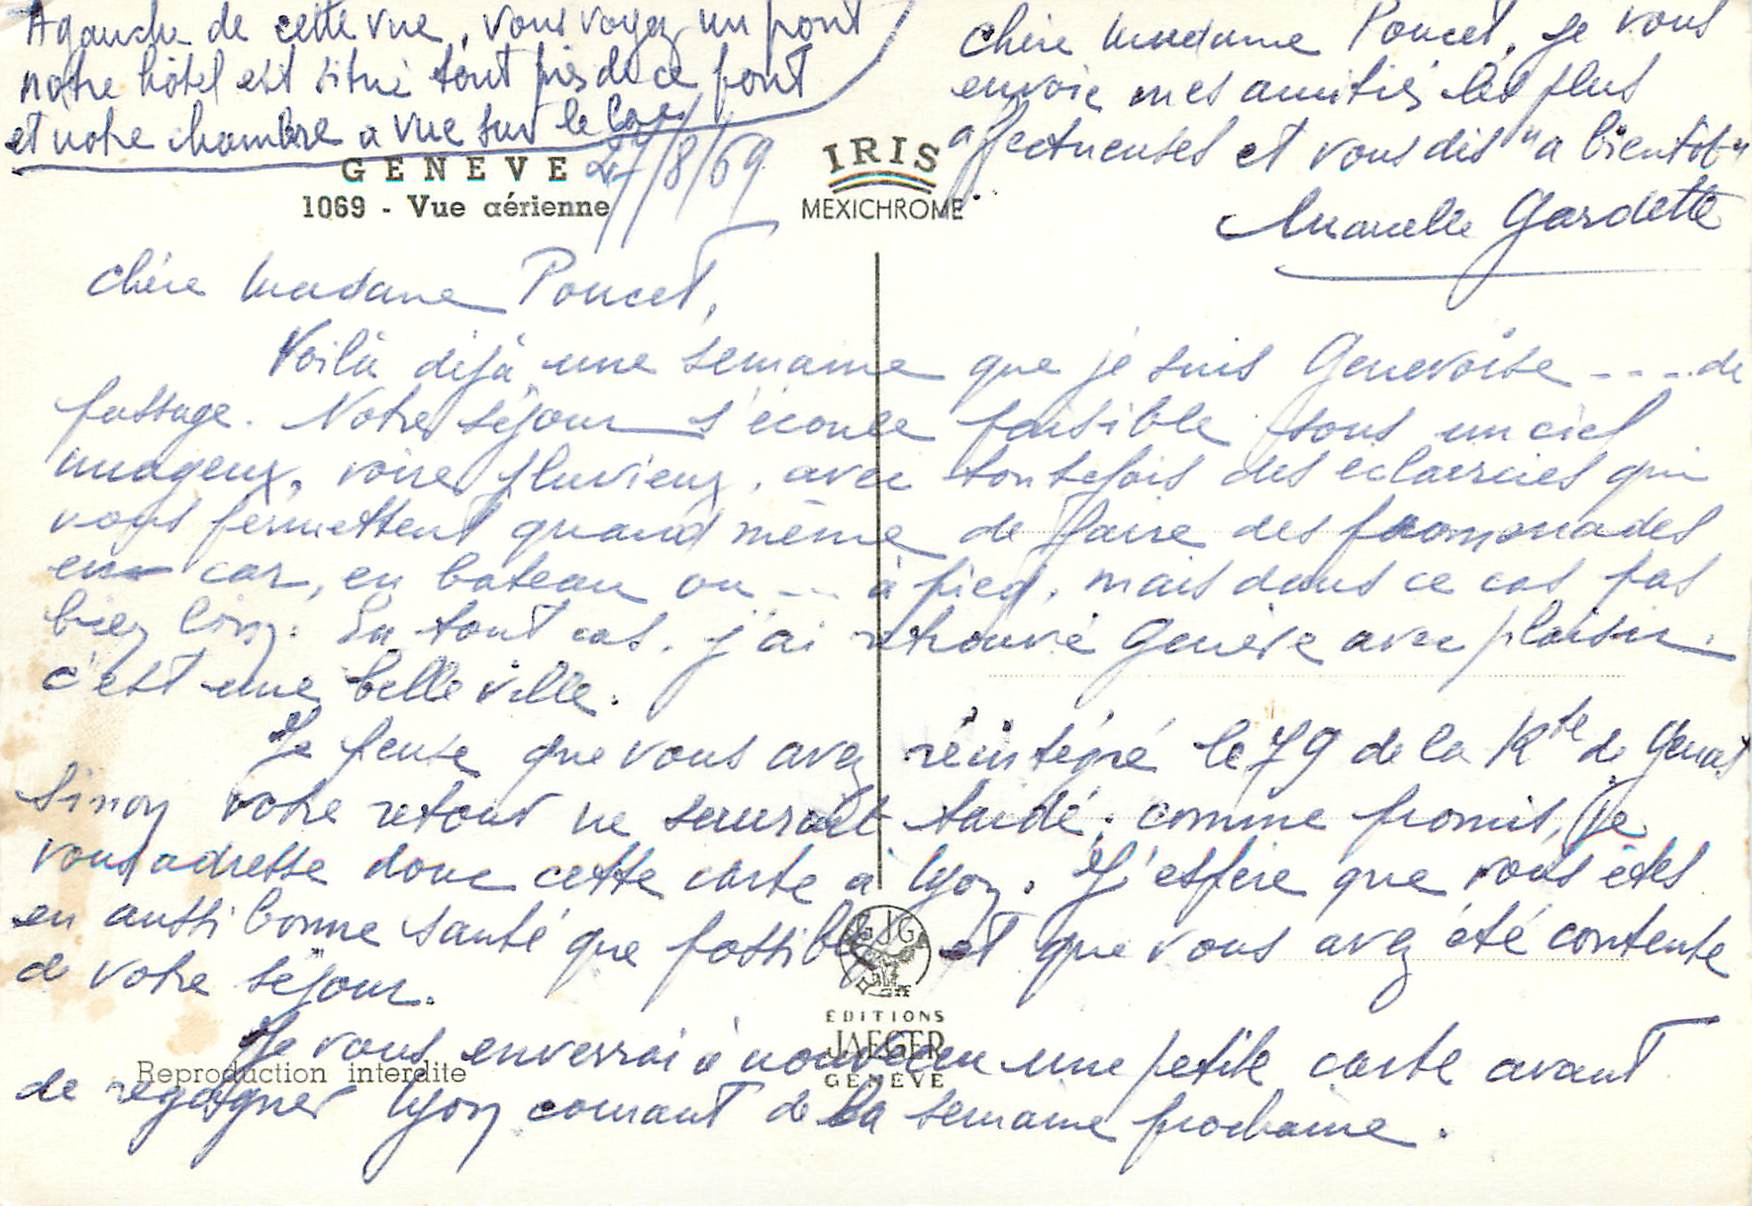 A gauche de cette vue, vous voyez un pont
notre hôtel est situé tout près de ce pont
et notre chambre a vue sur le lac
chère Madame Poucet, je vous
envoie mes amitiés les plus
affectueuses et vous dis "a bientôt"
Gardette
GENEVE
27/8/69
1069 - Vue aérienne
IRIS
MEXICHROME
chère Madame Poucet,
Voilà déjà une semaine que je suis Genevoise ---- de
passage. Notre séjour s'écoule paisible sous un ciel
nuageux, voire pluvieux, avec toutefois des eclaircies qui
vous permettent quand même de faire des promenades
en car, en bateau ou --- à pied, mais dans ce cas pas
bien loin. En tout cas, j'ai retrouvé Genève avec plaisir.
c'est une belle ville.
Je pense que vous avez réintégré le 79 de la Rte de Genas
Sinon votre retour ne saurait tardé; comme promis, je
vous adresse donc cette carte à Lyon. J'espère que vous êtes
en aussi bonne santé que possible et que vous avez été contente
de votre séjour.
Je vous enverrai à nouveau une petite carte avant
de regagner Lyon courant de la semaine prochaine.
JG
ÉDITIONS
JAEGER
GENÈVE
Reproduction interdite